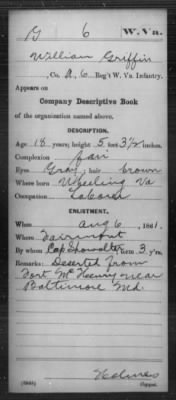 G 6 W. Va.
William Griffin
, Co. A, 6 Reg't W. Va. Infantry.
Appears on
Company Descriptive Book
of the organization named above.
DESCRIPTION.
Age 18 years; height 5 feet 3 1/2 inches.
Complexion fair
Eyes Gray; hair brown
Where born Wheeling Va
Occupation Laborer
ENLISTMENT.
When Aug 6, 1861.
Where Fairmont
By whom Cap Showalter; term 3 y'rs.
Remarks: Deserted from
Fort McHenry near
Baltimore Md.
Holmes
Copyist.